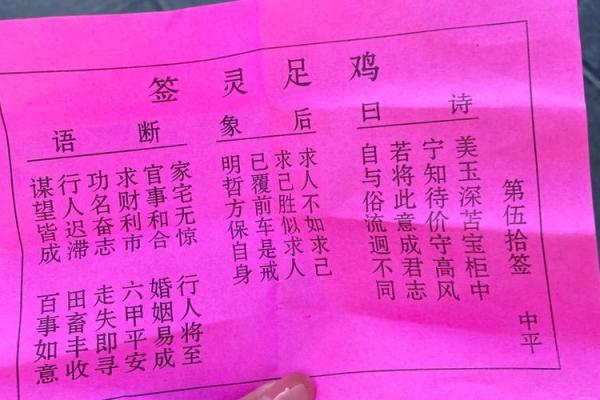 鸡足灵签
第伍拾签 中平
诗曰
美玉深苦宝柜中
宁知待价守高风
若将此意成君志
自与俗流迥不同
后象
求人不如求己
求己胜似求人
已覆前车是戒
明哲方保自身
断语
家宅无惊 行人将至
官事和合 婚姻易成
求财利市 六甲平安
功名奋志 走失即寻
行人迟滞 田畜丰收
谋望皆成 百事如意